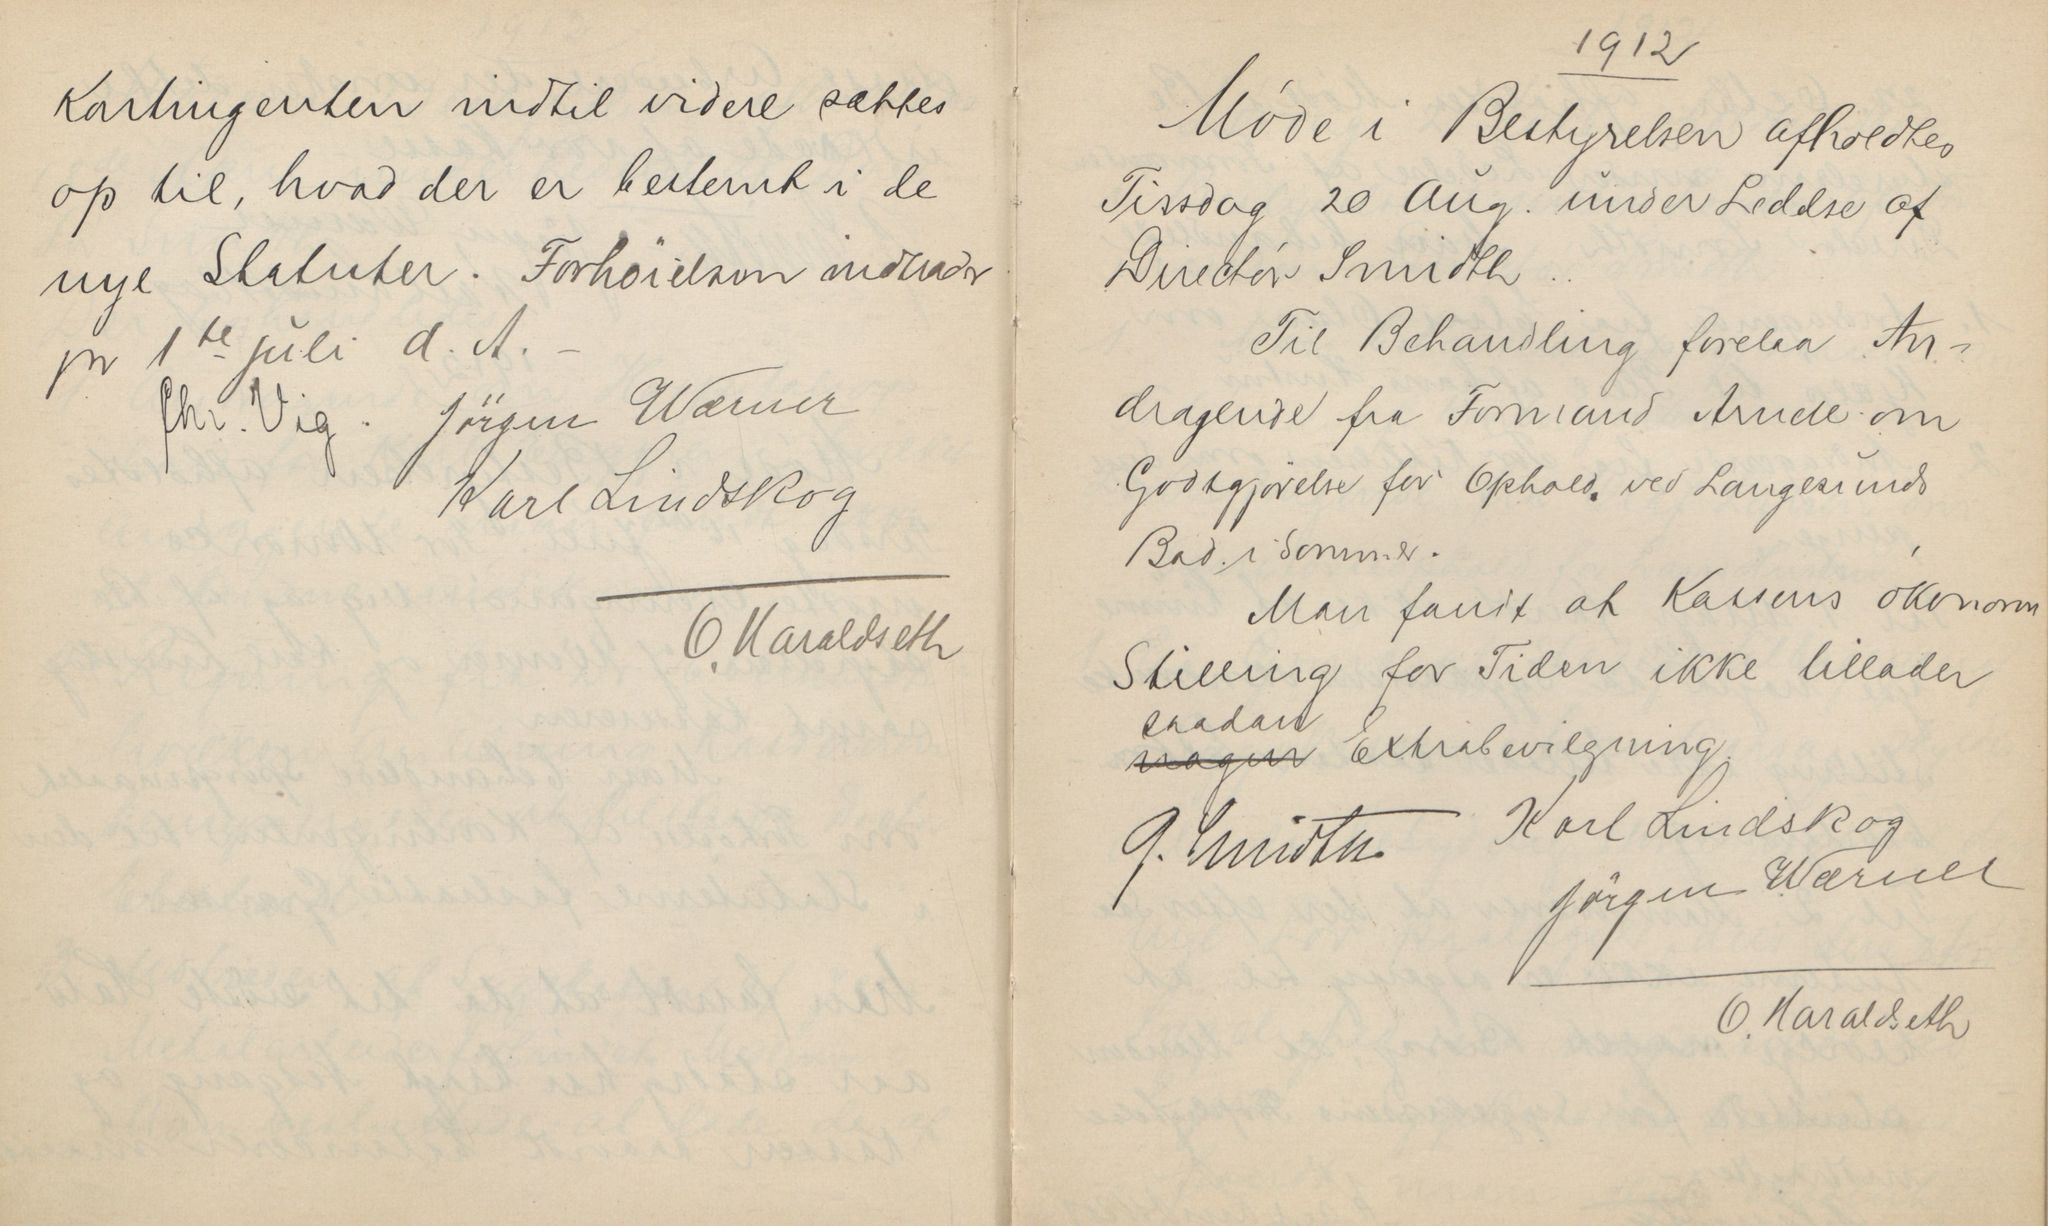 Kontingenten indtil videre sættes
op til, hvad der er bestemt i de
nye Statuter. Forhöielsen indtræder
pr 1te juli d. A. –
Chr. Vig. Jörgen Wærner
Karl Lindskog
O. Haraldseth
1912
Møde i Bestyrelsen afholdtes
Tirsdag 20 Aug. under Ledelse af
Directör Smidth ..
Til Behandling forelaa An-
dragende fra Formand Arnde om
Godtgjörelse for Ophold. ved Langesunds
Bad. i Sommer.
Man fandt at Kassens økonom
Stilling for Tiden ikke tillader
saadan
nogen Extrabevilgning.
G. Smidth. Karl Lindskog
Jörgen Wærner
O. Haraldseth